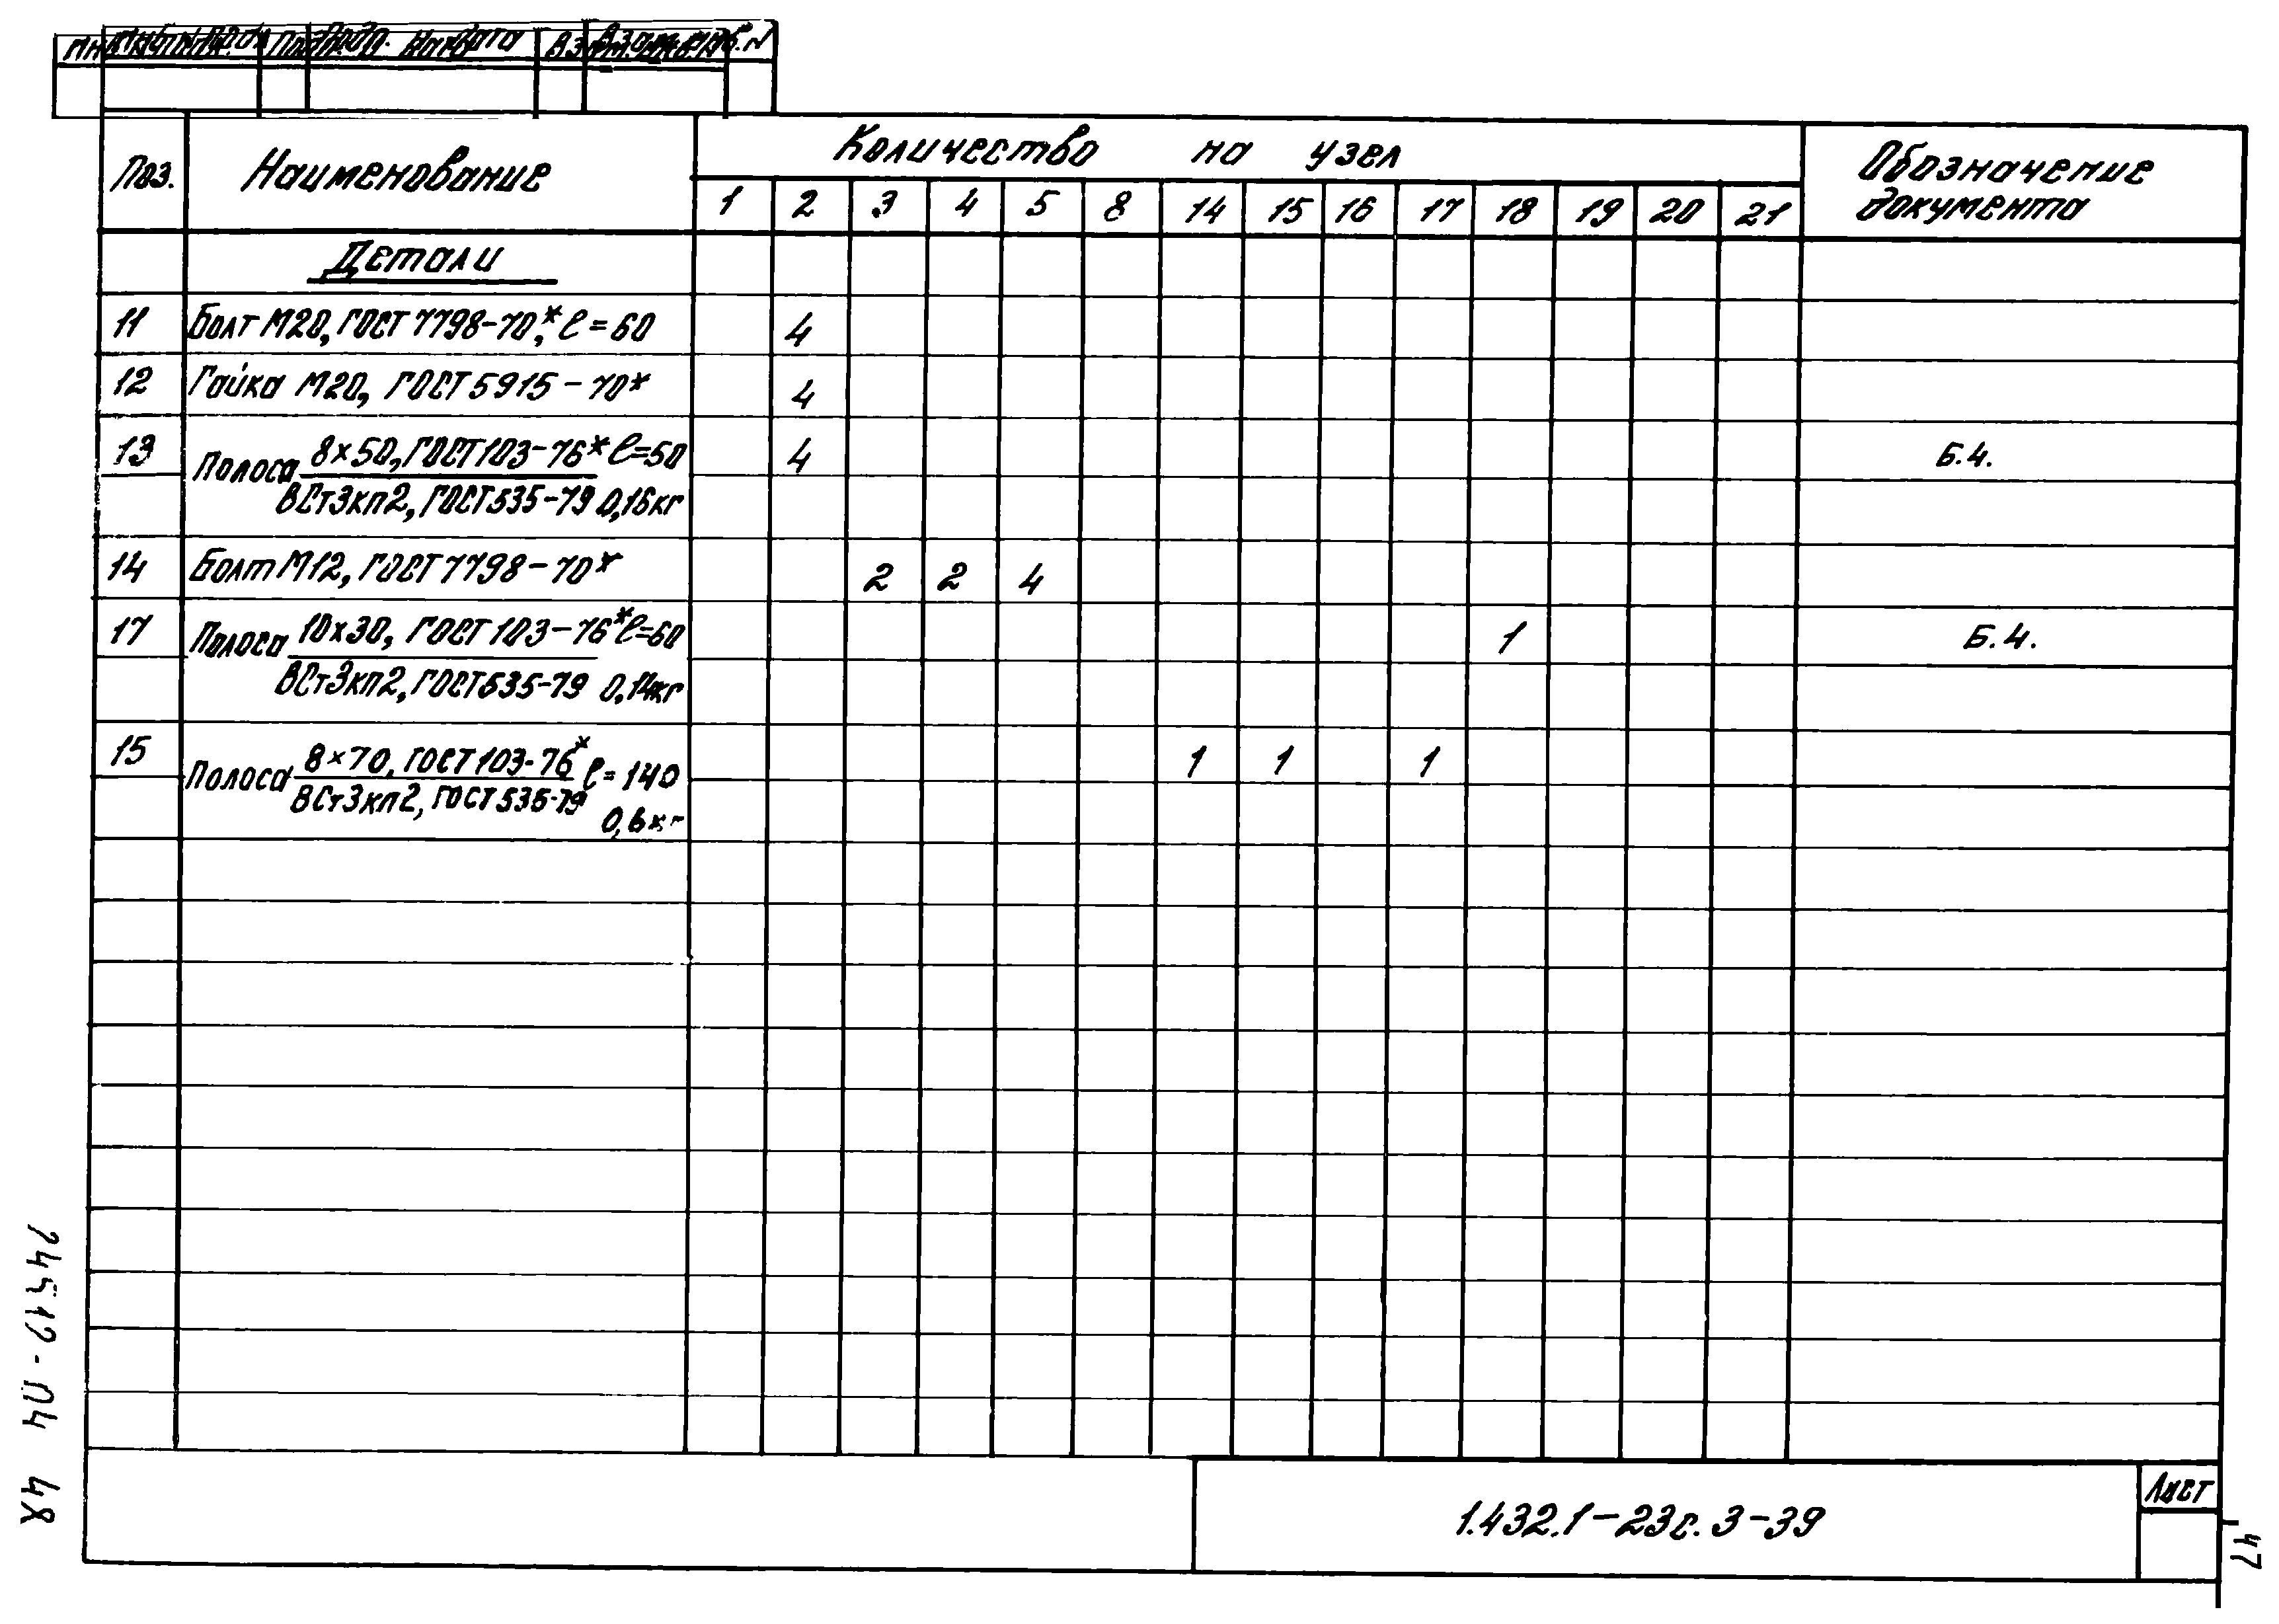 Поз.
Наименование
Количество на узел
Обозначение
документа
1 2 3 4 5 8 14 15 16 17 18 19 20 21
Детали
11 Болт М20, ГОСТ 7798-70,* ℓ=60 4
12 Гайка М20, ГОСТ 5915-70* 4
13 Полоса 8×50, ГОСТ 103-76* ℓ=50 4 Б.4.
ВСт3кп2, ГОСТ 535-79 0,16кг
14 Болт М12, ГОСТ 7798-70* 2 2 4
17 Полоса 10×30, ГОСТ 103-76* ℓ=60 1 Б.4.
ВСт3кп2, ГОСТ 535-79 0,14кг
15 Полоса 8×70, ГОСТ 103-76* ℓ=140 1 1 1
ВСт3кп2, ГОСТ 535-79
0,6кг
1.432.1-23с.3-39
Лист
47
24512-04 48